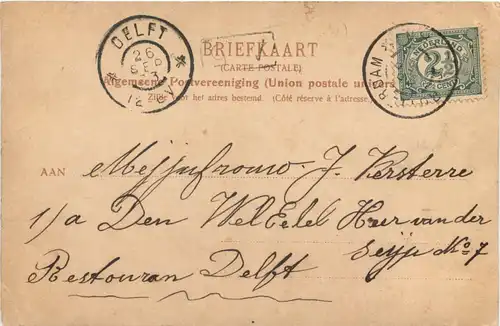 DELFT
26
SEP
12
BRIEFKAART
(CARTE POSTALE)
Algemeene Postvereeniging (Union postale univers
ZIJDE voor het adres bestemd. (Côté réserve à l'adresse
NEDERLAND
2½
CENT
RDAM
AAN Mejjufrouw J. Kersterre
1/a Den WelEdel Heer van der
Restouran Delft
No 7